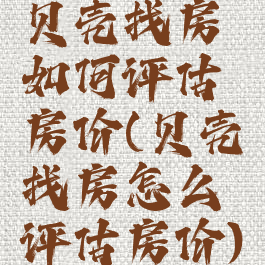 贝壳找房
如何评估
房价(贝壳
找房怎么
评估房价)